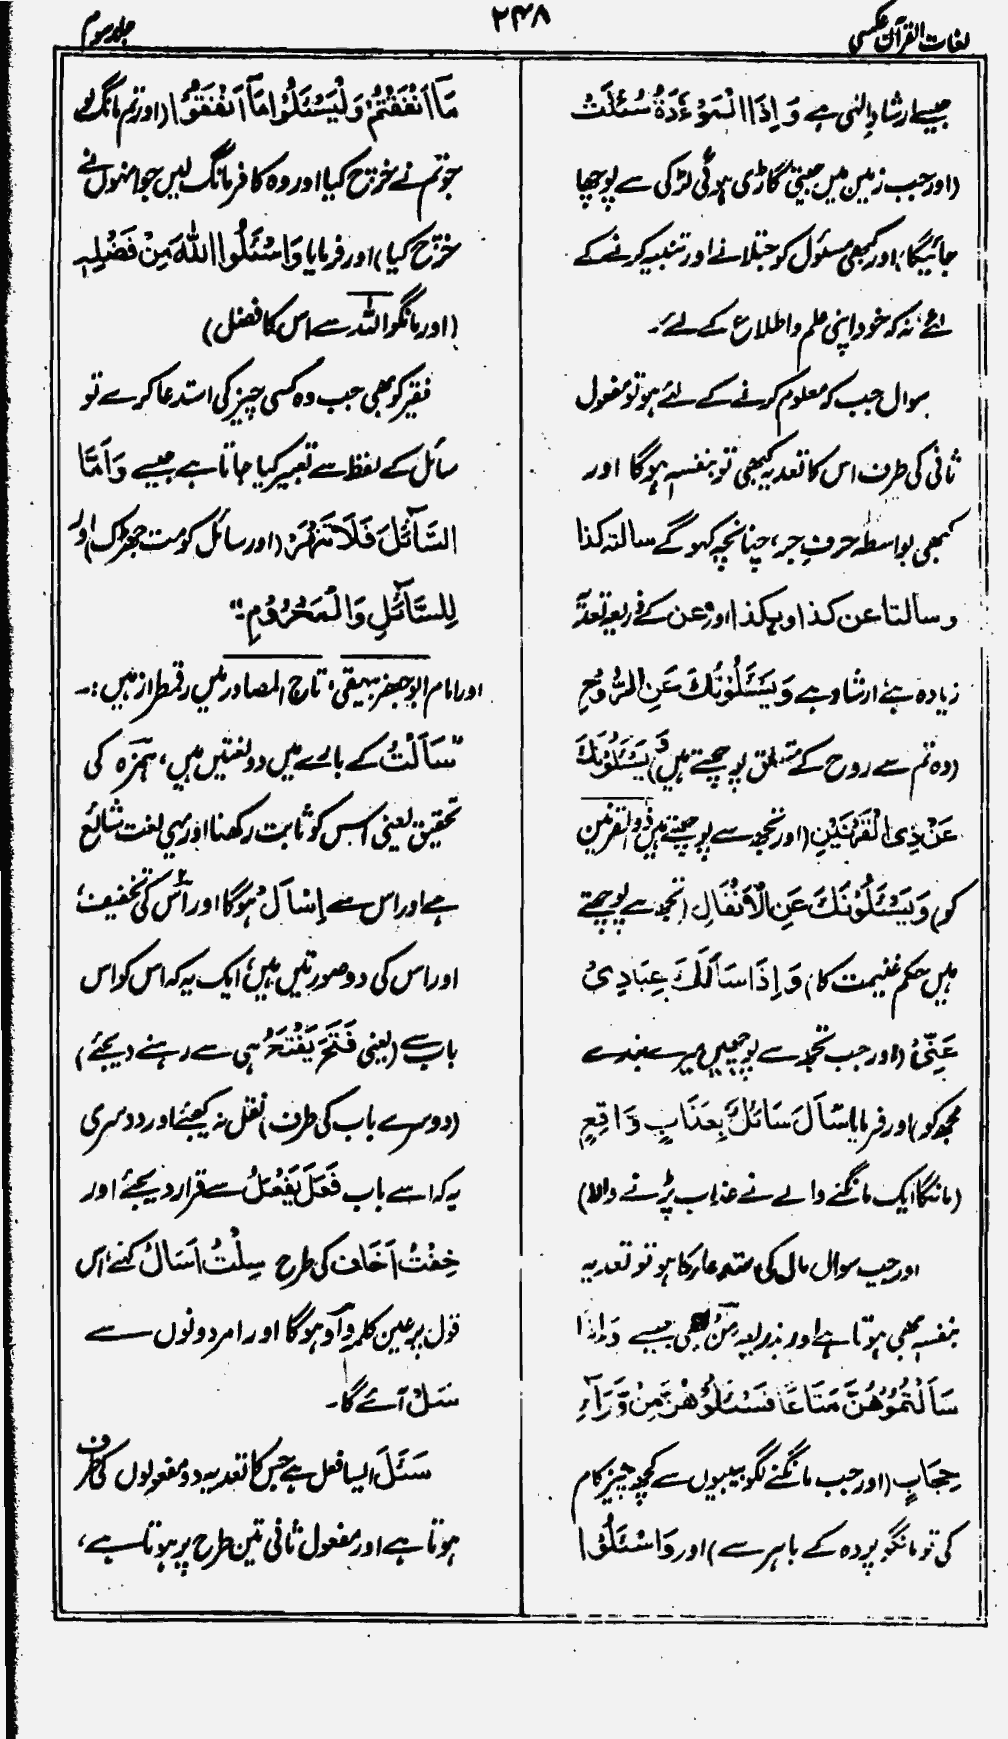 لغات القرآن عکسی
۲۴۸
جلد سوم
جیسے ارشاد الٰہی ہے وَاِذَا الْمَوْءٗدَةُ سُئِلَتْ
(اور جب زمین میں جیتی گاڑی ہوئی لڑکی سے پوچھا
جائیگا) اور کبھی مسئول کو جتلانے اور تنبیہ کرنے کے
لئے نہ کہ خود اپنی علم و اطلاع کے لئے۔
سوال جب کہ معلوم کرنے کے لئے ہو تو مفعول
ثانی کی طرف اس کا تعدیہ کبھی تو بنفسہٖ ہوگا اور
کبھی بواسطہ حرفِ جر، چنانچہ کہو گے سالته کذا
وسالتا عن کذا وبکذا اور عن کے ذریعہ تعدیہ
زیادہ ہے ارشاد ہے وَيَسْئَلُوْنَكَ عَنِ الرُّوْحِ
(وہ تم سے روح کے متعلق پوچھتے ہیں) وَيَسْئَلُوْنَكَ
عَنْ ذِی الْقَرْنَیْنِ (اور تجھ سے پوچھتے ہیں ذوالقرنین
کو) وَيَسْئَلُوْنَكَ عَنِ الْاَنْفَالِ (تجھ سے پوچھتے
ہیں حکم غنیمت کا) وَاِذَا سَاَلَكَ عِبَادِیْ
عَنِّیْ (اور جب تجھ سے پوچھیں میرے بندے
مجھ کو) اور فرمایا سَاَلَ سَائِلٌ بِعَذَابٍ وَّاقِعٍ
(مانگا ایک مانگنے والے نے عذاب پڑنے والا)
اور جب سوال مال کی استدعا کا ہو تو تعدیہ
بنفسہٖ بھی ہوتا ہے اور بذریعہ مِنْ بھی جیسے وَاِذَا
سَاَلْتُمُوْهُنَّ مَتَاعًا فَسْئَلُوْهُنَّ مِنْ وَّرَآءِ
حِجَابٍ (اور جب مانگنے لگو بیبیوں سے کچھ چیز کام
کی تو مانگو پردہ کے باہر سے) اور وَاسْئَلُوْا
مَآ اَنْفَقْتُمْ وَلْيَسْئَلُوْا مَآ اَنْفَقُوْا (اور تم مانگ لو
جو تم نے خرچ کیا اور وہ کافر مانگ لیں جو انہوں نے
خرچ کیا) اور فرمایا وَاسْئَلُوا اللّٰهَ مِنْ فَضْلِهٖ
(اور مانگو اللہ سے اس کا فضل)
فقیر کو بھی جب وہ کسی چیز کی استدعا کرے تو
سائل کے لفظ سے تعبیر کیا جاتا ہے جیسے وَاَمَّا
السَّآئِلَ فَلَا تَنْهَرْ (اور سائل کو مت جھڑک) اور
لِلسَّآئِلِ وَالْمَحْرُوْمِ۔"
اور امام ابو جعفر بیہقی، تاج المصادر میں رقمطراز ہیں:۔
"سَاَلْتُ کے بارے میں دو لغتیں ہیں، ہمزہ کی
تحقیق یعنی اس کو ثابت رکھنا اور یہی لغت شائع
ہے اور اس سے اِسْاَلْ ہوگا اور اس کی تخفیف،
اور اس کی دو صورتیں ہیں ایک یہ کہ اس کو اس
باب سے (یعنی فَتَحَ یَفْتَحُ ہی سے رہنے دیجئے)
(دوسرے باب کی طرف) نقل نہ کیجئے اور دوسری
یہ کہ اسے باب فَعَلَ یَفْعَلُ سے قرار دیجئے اور
خِفْتُ اَخَافُ کی طرح سِلْتُ اَسَالُ کہئے اس
قول پر عین کلمہ واؤ ہوگا اور امر دونوں سے
سَلْ آئے گا۔
سَئَلَ ایسا فعل ہے جس کا تعدیہ دو مفعولوں کی طرف
ہوتا ہے اور مفعول ثانی تین طرح پر ہوتا ہے،